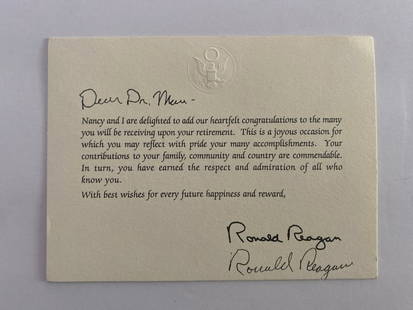 Dear Dr. Mau -
Nancy and I are delighted to add our heartfelt congratulations to the many
you will be receiving upon your retirement. This is a joyous occasion for
which you may reflect with pride your many accomplishments. Your
contributions to your family, community and country are commendable.
In turn, you have earned the respect and admiration of all who
know you.
With best wishes for every future happiness and reward,
Ronald Reagan
Ronald Reagan